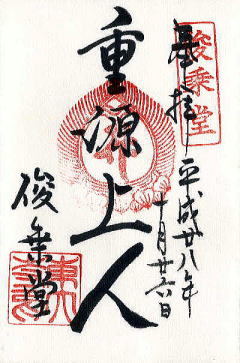 俊乗堂
奉拝
平成廿八年
十月廿六日
重源上人
俊乗堂